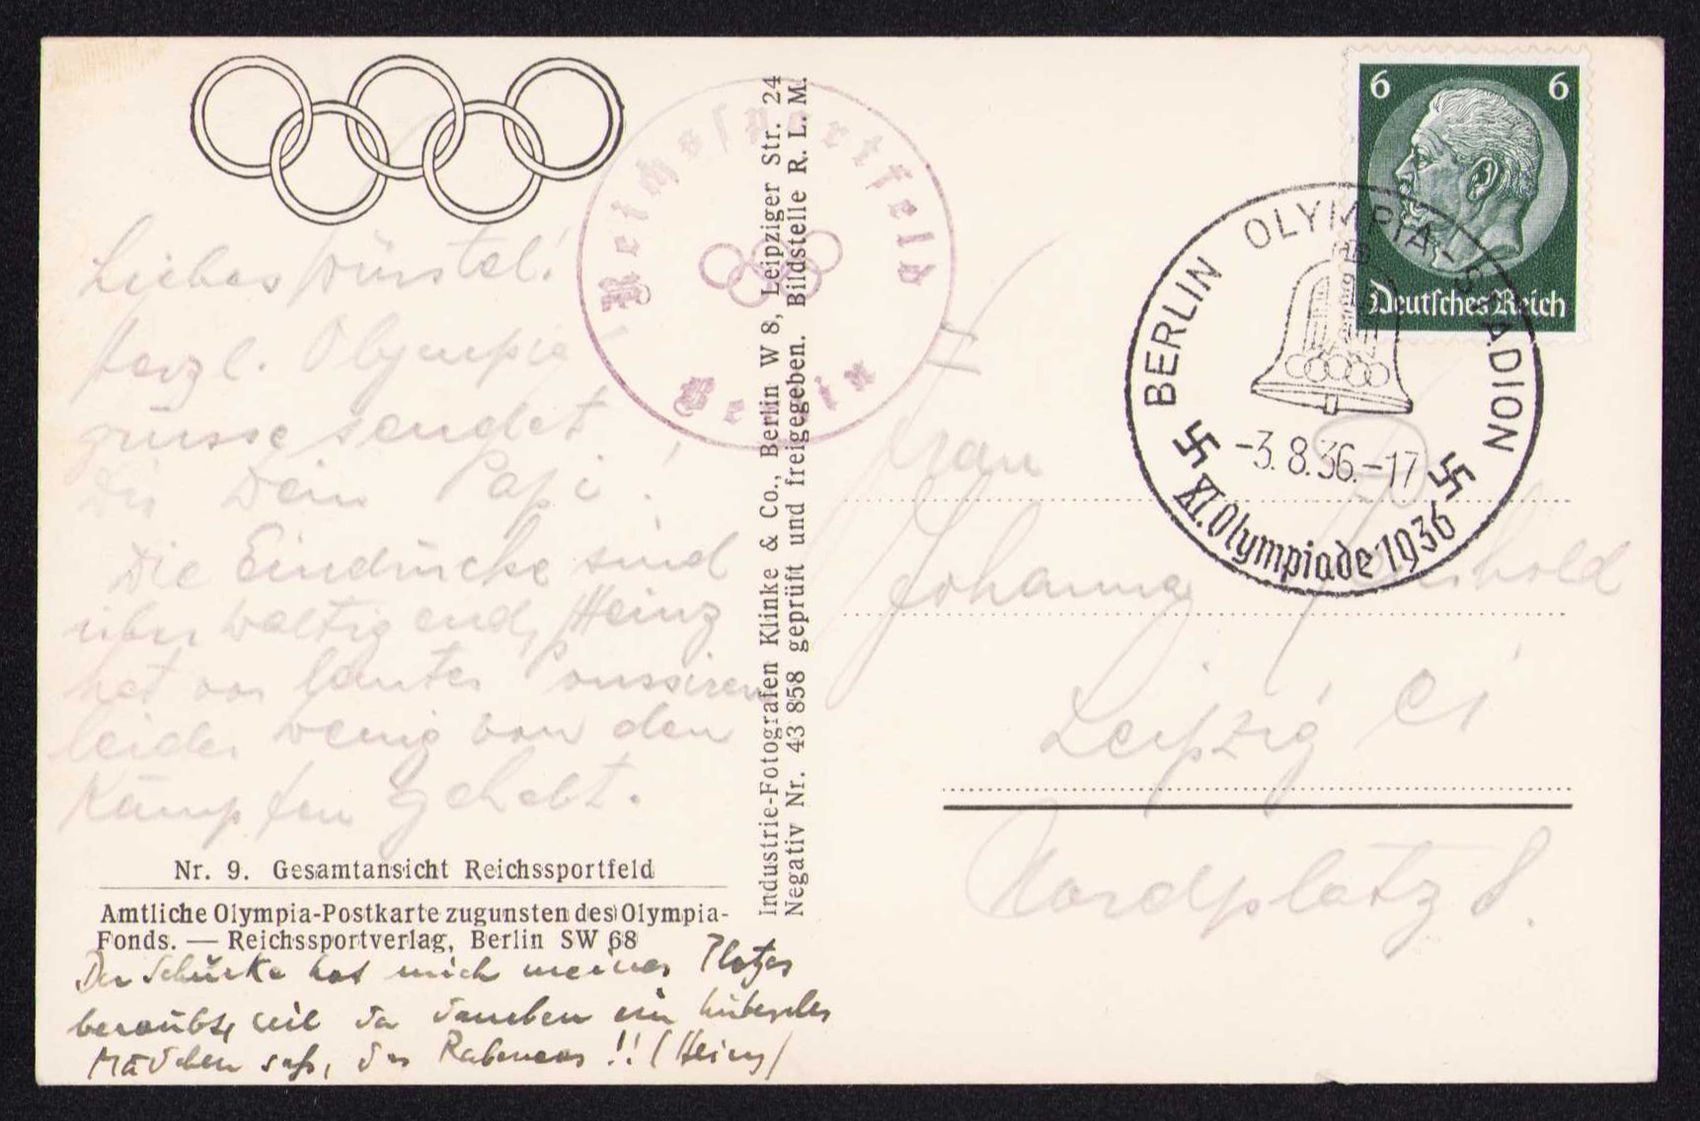 Reichssportfeld
Berlin
6 6
Deutsches Reich
BERLIN OLYMPIA-STADION
-3.8.36.-17
XI. Olympiade 1936
Liebes Würstel!
Herzl. Olympia
grüsse sendet
Dir Dein Papi!
Die Eindrücke sind
überwältigend, Heinz
hat vor lauter Poussieren
leider wenig von den
Kämpfen gehabt.
Nr. 9. Gesamtansicht Reichssportfeld
Amtliche Olympia-Postkarte zugunsten des Olympia-
Fonds. — Reichssportverlag, Berlin SW 68
Der Schurke hat mich meines Platzes
beraubt, weil da daneben ein hübsches
Mädchen saß, das Rabenaas!! (Heinz)
Industrie-Fotografen Klinke & Co., Berlin W 8, Leipziger Str. 24
Negativ Nr. 43 858 geprüft und freigegeben. Bildstelle R. L. M.
Frau
Johanna
Leipzig C1
Nordplatz 8.